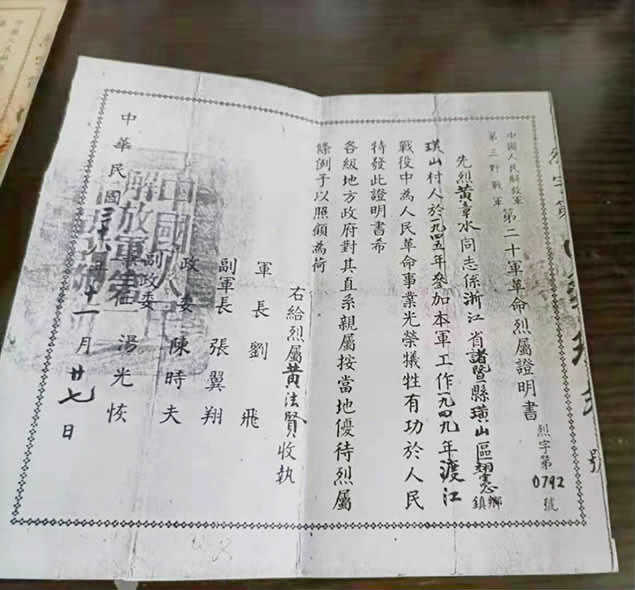 中國人民解放軍
第三野戰軍
第二十軍革命烈屬證明書
烈字第0792號
先烈黃章水同志係浙江省諸暨縣璜山區
鄉
鎮
璜山村人於一九四五年參加本軍工作一九四九年渡江
戰役中為人民革命事業光榮犧牲有功於人民
特發此證明書希
各級地方政府對其直系親屬按當地優待烈屬
條例予以照顧為荷
右給烈屬黃法賢收執
軍長劉飛
副軍長張翼翔
政委陳時夫
副政委
湯光恢
中華民國
年十一月廿七日
號